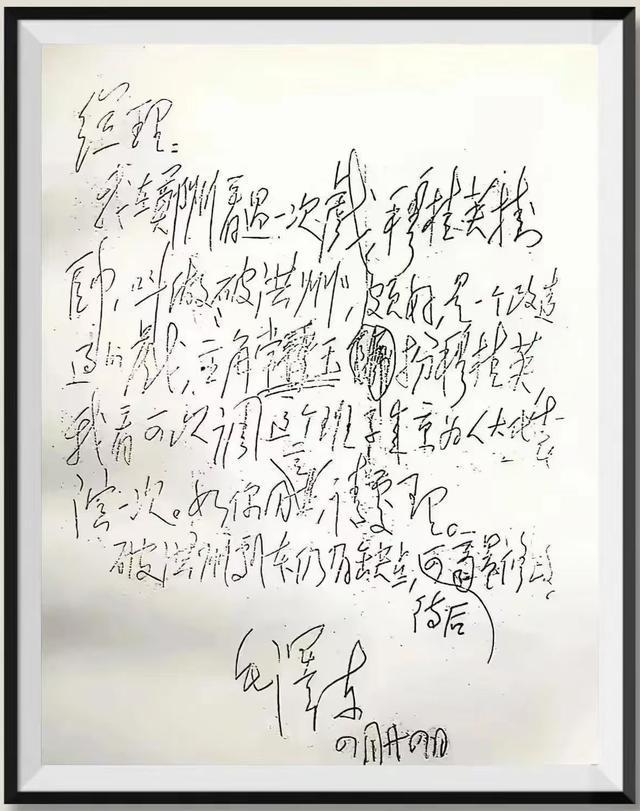 總理:
我在鄭州看过一次戲,穆桂英掛
帥,叫做“破洪州”,頗好,是一个改造
过的戲,主角常香玉扮穆桂英
我看可以调这个班子來京为人大代表
演一次。如你同意,请處理。
破洪州劇本仍有缺点,可商量修改。
待后
毛澤东
四月廿四日